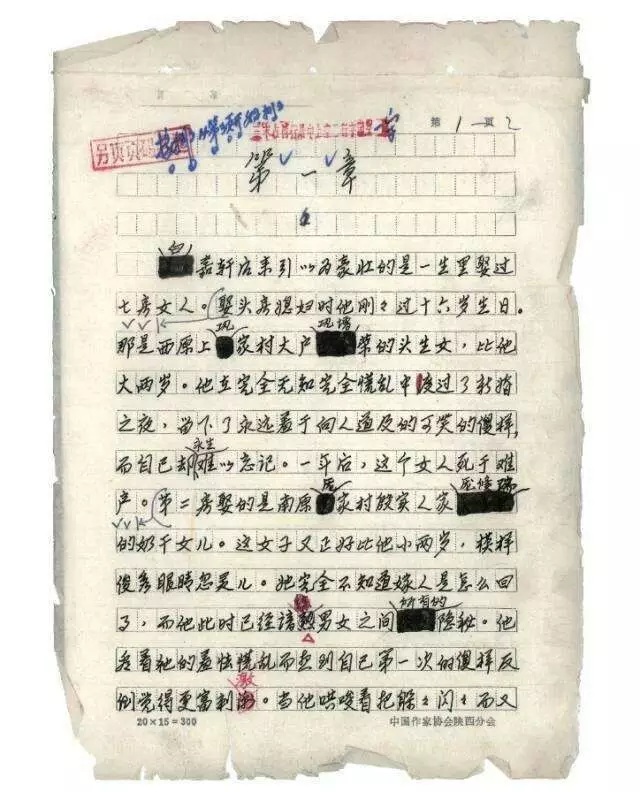 第1—页2
另页页码
第一章
白嘉轩后来引以为豪壮的是一生里娶过
七房女人。娶头房媳妇时他刚々过十六岁生日。
那是西原上巩家村大户巩增荣的头生女，比他
大两岁。他在完全无知完全慌乱中度过了新婚
之夜，留下了永远羞于向人道及的可笑的傻样，
而自己却永生难以忘记。一年后，这个女人死于难
产。第二房娶的是南原庞家村殷实人家庞修瑞
的奶干女儿。这女子又正好比他小两岁，模样
俊秀眼睛忽灵儿。她完全不知道嫁人是怎么回
事，而他此时已经谙熟男女之间所有的隐秘。他
看着她的羞怯慌乱而想到自己第一次的傻样反
倒觉得更富刺激。当他哄唆着把躲々闪々而又
20×15=300 中国作家协会陕西分会